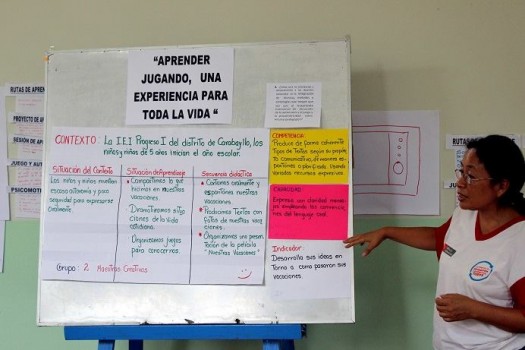 "APRENDER
JUGANDO, UNA
EXPERIENCIA PARA
TODA LA VIDA"
RUTAS DE APR
PROYECTO DE
SESIÓN DE
JUEGO Y AUT
PSICOMOT
CONTEXTO: La I.E.I Progreso I del distrito de Carabayllo, los
niños y niñas de 5 años inician el año escolar.
Situación del Contexto
Los niños y niñas muestran
escasa autonomía y poca
seguridad para expresarse
oralmente.
Situación de Aprendizaje
Compartimos lo que
hicimos en nuestras
vacaciones.
Dramatizamos situa
ciones de la vida
cotidiana.
Organizamos juegos
para conocernos.
Secuencia didáctica
Contamos oralmente y
exponimos nuestras
vacaciones.
Producimos Textos con
fotos de nuestras vaca
ciones.
Organizamos una presen
tación de la película
"Nuestras Vacaciones"
Grupo: 2 Maestras Creativas
COMPETENCIA:
Produce de forma coherente
Tipos de Textos según su propósi
to comunicativo, de manera
espontánea o planificada, usando
variados recursos expresivos.
CAPACIDAD
Expresa con claridad mensa
jes empleando las convencio
nes del lenguaje oral.
Indicador:
Desarrolla sus ideas en
Torno a como pasaron sus
vacaciones.
RUTAS